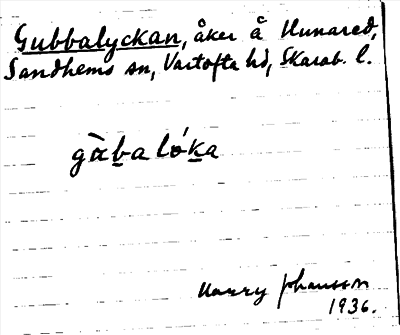 Gubbalyckan, åker å Hunared,
Sandhems sn, Vartofta hd, Skarab. l.
gàba lóka
Harry Johansson
1936.